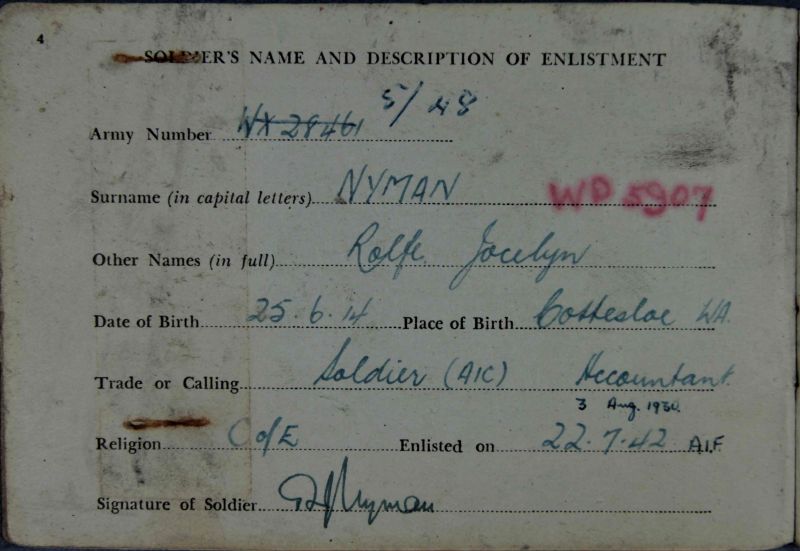 4
SOLDIER'S NAME AND DESCRIPTION OF ENLISTMENT
5/48
Army Number WX 28461
Surname (in capital letters) NYMAN WP 5907
Other Names (in full) Rolfe Jocelyn
Date of Birth 25.6.14 Place of Birth Cottesloe WA.
Trade or Calling Soldier (AIC) Accountant.
3 Aug. 1930.
Religion C of E Enlisted on 22.7.42 AIF
Signature of Soldier RJNyman